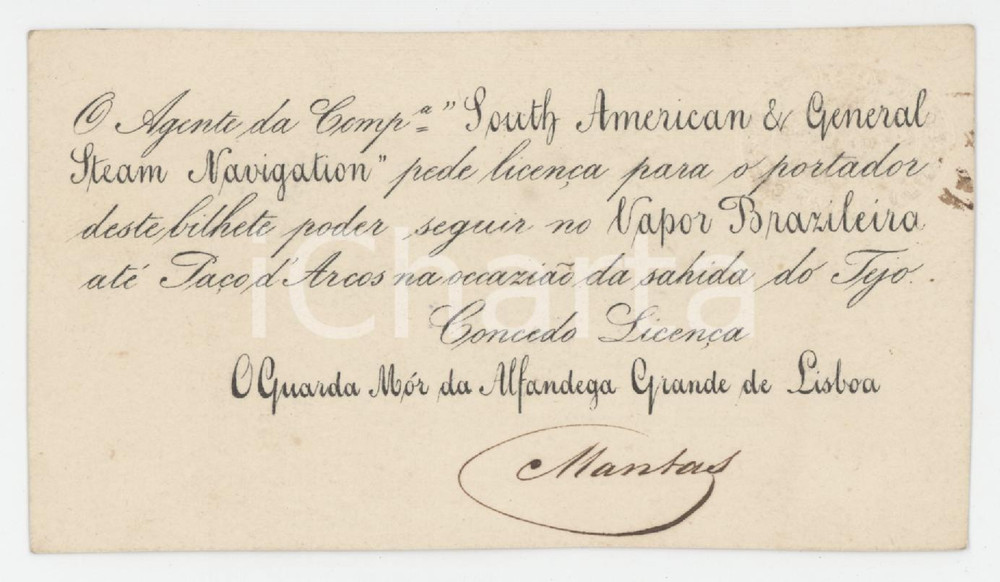 O Agente da Comp.ª "South American & General
Steam Navigation" pede licença para o portador
deste bilhete poder seguir no Vapor Brazileira
até Paço d'Arcos na occazião da sahida do Tejo.
Concedo Licença
O Guarda Mór da Alfandega Grande de Lisboa
Mantas
iCharta